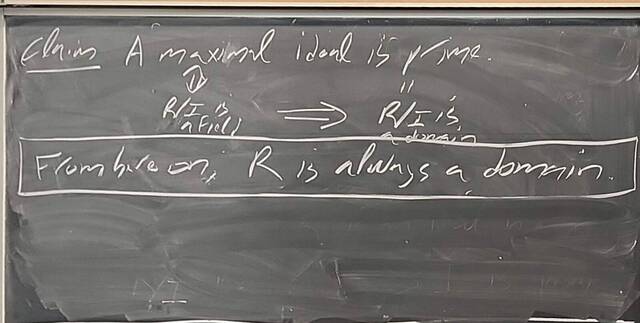 Claim A maximal ideal is prime.
R/I is a field ⟹ R/I is a domain
From here on, R is always a domain.